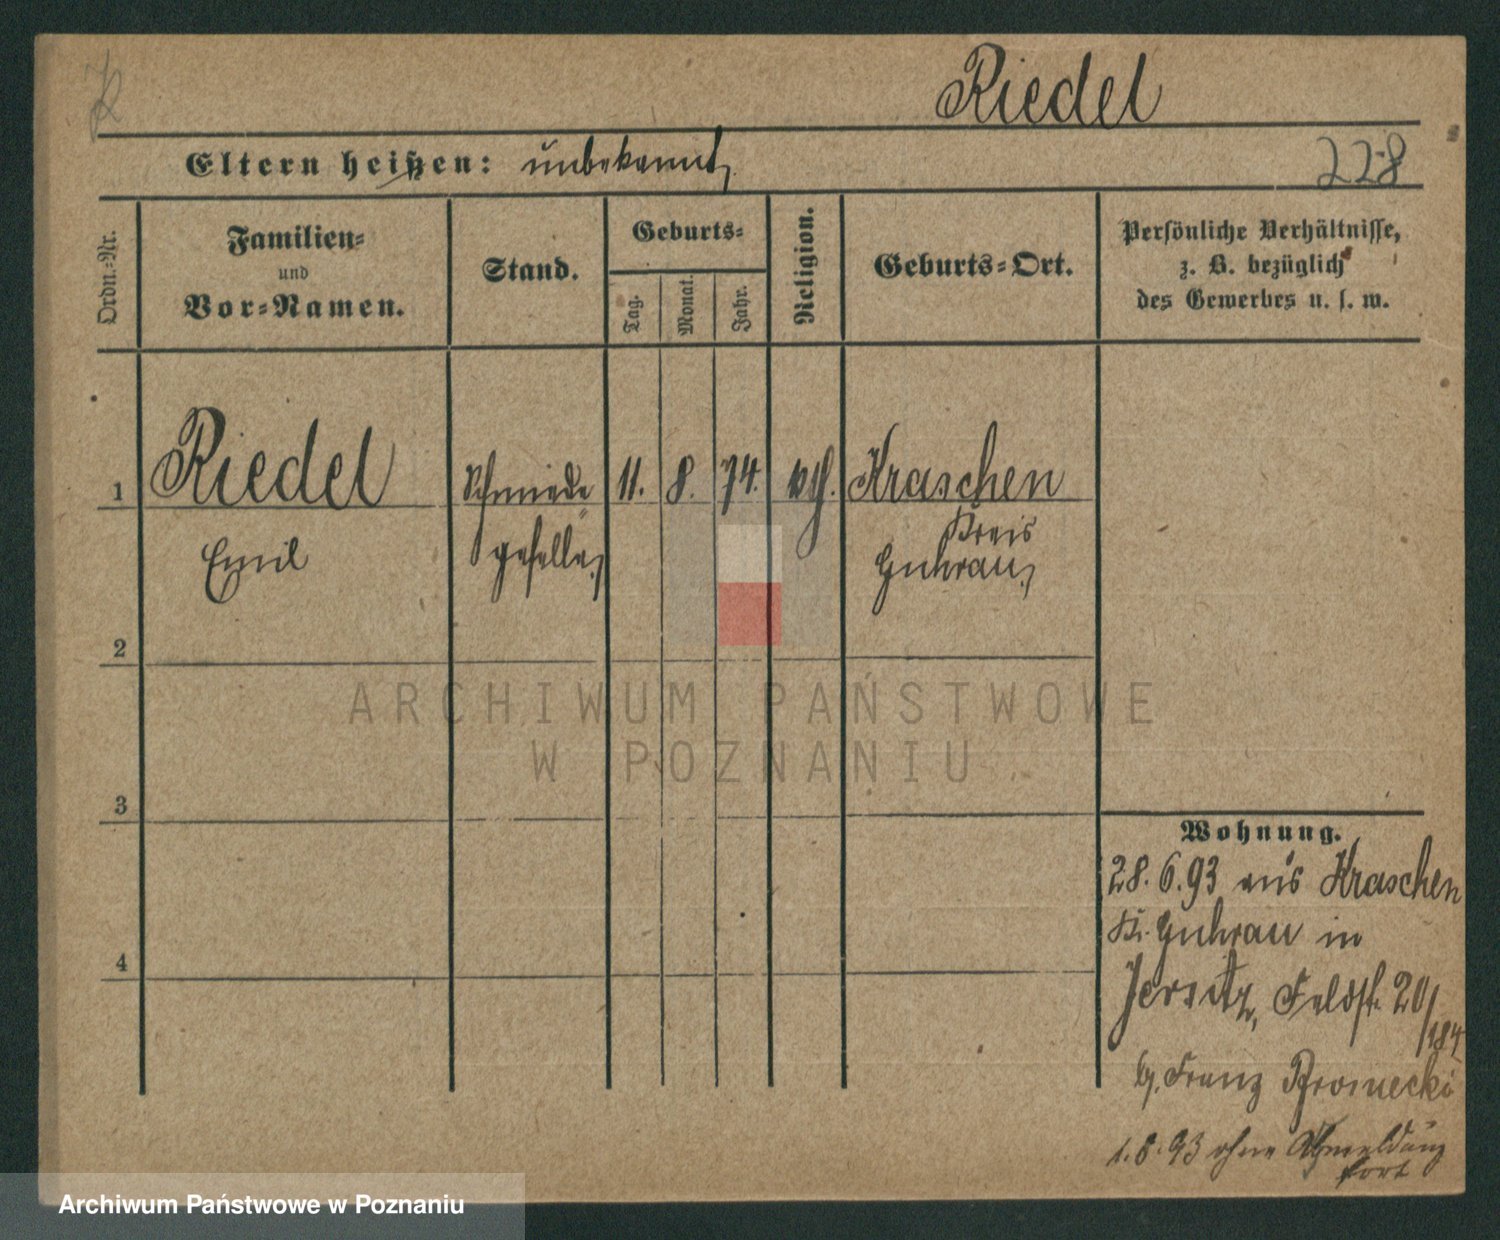 Riedel
Eltern heißen: unbekannt
228
Ordn.-Nr.
Familien-
und
Vor-Namen.
Stand.
Geburts-
Tag.
Monat.
Jahr.
Religion.
Geburts-Ort.
Persönliche Verhältnisse,
z. B. bezüglich
des Gewerbes u. s. w.
1 Riedel Schmiede 11. 8. 74. Kraschen
Emil geselle Kreis
Guhrau
2
3
4
ARCHIWUM PAŃSTWOWE
W POZNANIU
Wohnung.
28. 6. 93 aus Kraschen
Kr. Guhrau in
Jersitz, Feldst. 20/
184
b. Franz
1. 8. 93 ohne Abmeldung
fort
Archiwum Państwowe w Poznaniu